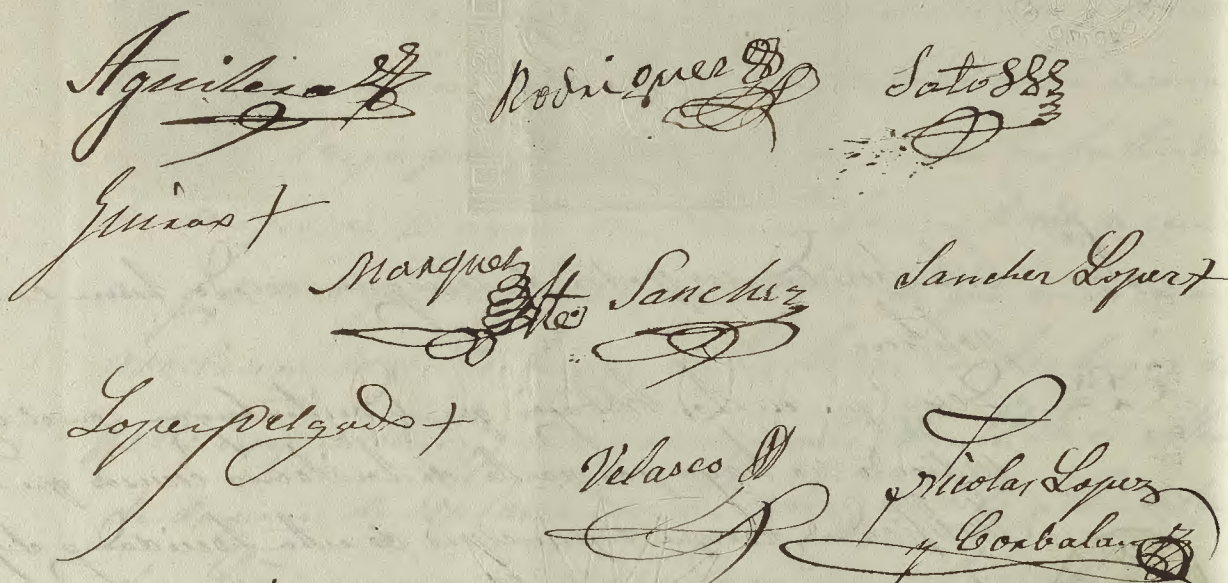 Aguilera Rodriguez Soto
Guirao +
Marquez Sanchez Sanchez Lopez +
Lopez Delgado +
Velasco Nicolas Lopez
y Corbalan